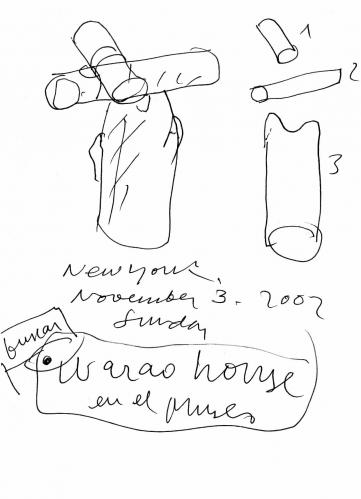 1
2
3
New York,
November 3. 2002
Sunday
buscar
warao house
en el museo